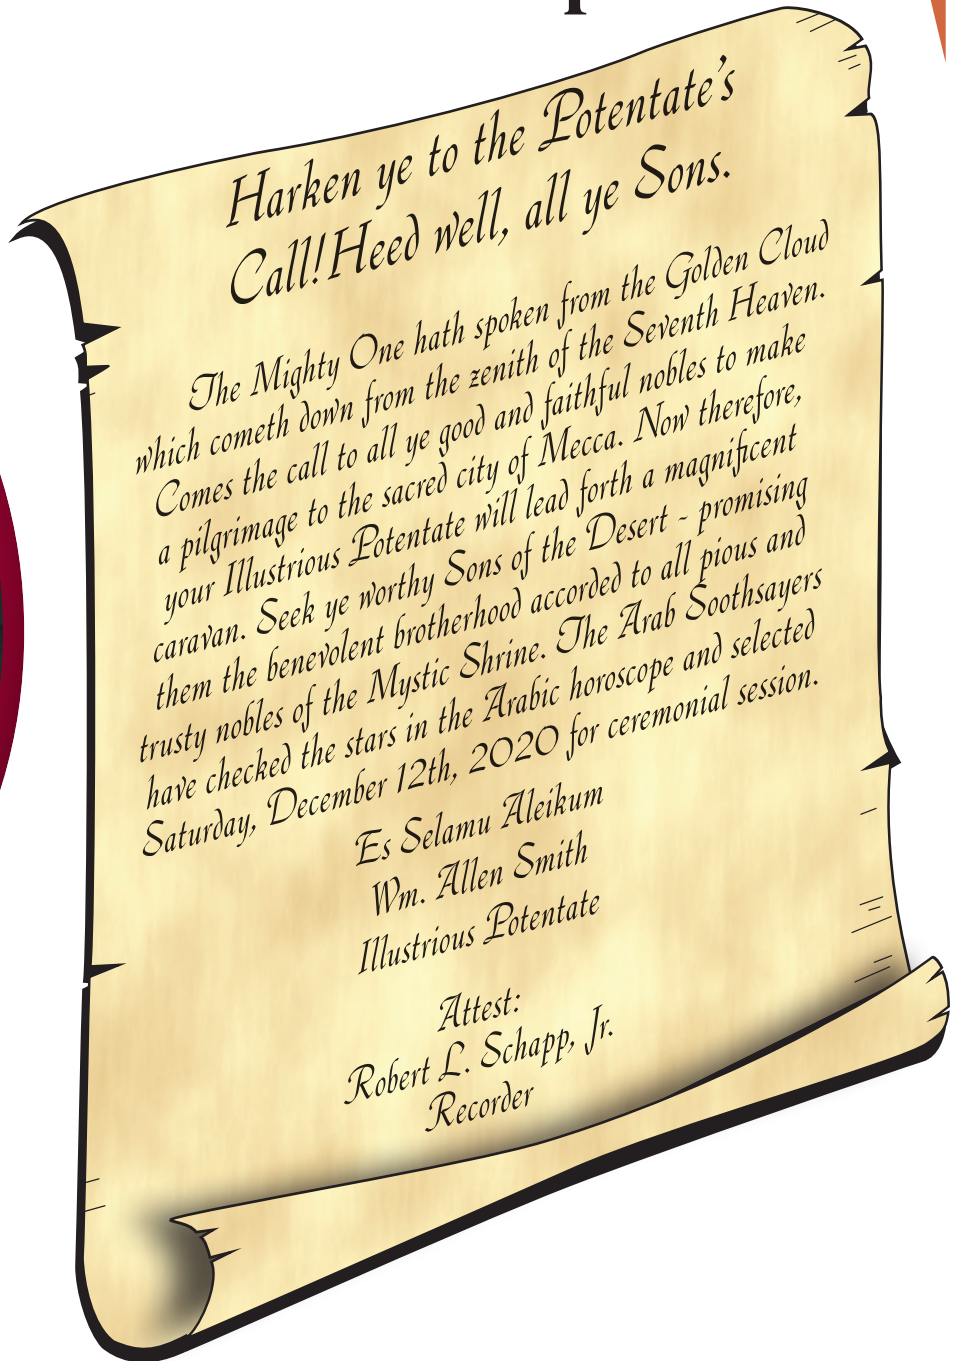 Harken ye to the Potentate's
Call! Heed well, all ye Sons.
The Mighty One hath spoken from the Golden Cloud
which cometh down from the zenith of the Seventh Heaven.
Comes the call to all ye good and faithful nobles to make
a pilgrimage to the sacred city of Mecca. Now therefore,
your Illustrious Potentate will lead forth a magnificent
caravan. Seek ye worthy Sons of the Desert - promising
them the benevolent brotherhood accorded to all pious and
trusty nobles of the Mystic Shrine. The Arab Soothsayers
have checked the stars in the Arabic horoscope and selected
Saturday, December 12th, 2020 for ceremonial session.
Es Selamu Aleikum
Wm. Allen Smith
Illustrious Potentate
Attest:
Robert L. Schapp, Jr.
Recorder